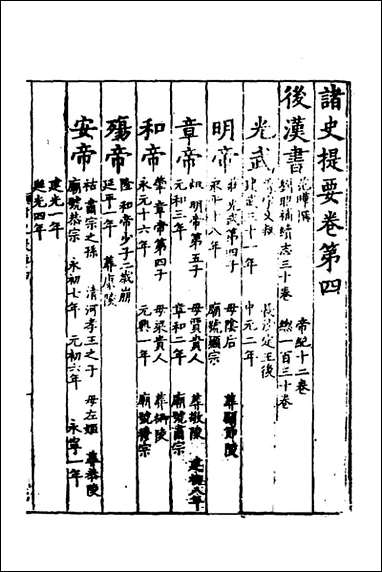 諸史提要卷第四
後漢書
范曄撰 帝紀十二卷
劉昭補續志三十卷 總一百三十卷
光武
字文叔 長沙定王後
建武三十一年 中元二年
明帝
莊 光武第四子 母陰后 葬顯節陵
永平十八年 廟號顯宗
章帝
炟 明帝第五子 母賈貴人 葬敬陵 建初八年
元和三年 章和二年 廟號肅宗
和帝
肇 章帝第四子 母梁貴人 葬慎陵
永元十六年 元興一年 廟號穆宗
殤帝
隆 和帝少子 二歲崩
延平一年 葬康陵
安帝
祜 肅宗之孫 清河孝王之子 母左姬 葬恭陵
廟號恭宗 永初七年 元初六年 永寧一年
建光一年
延光四年